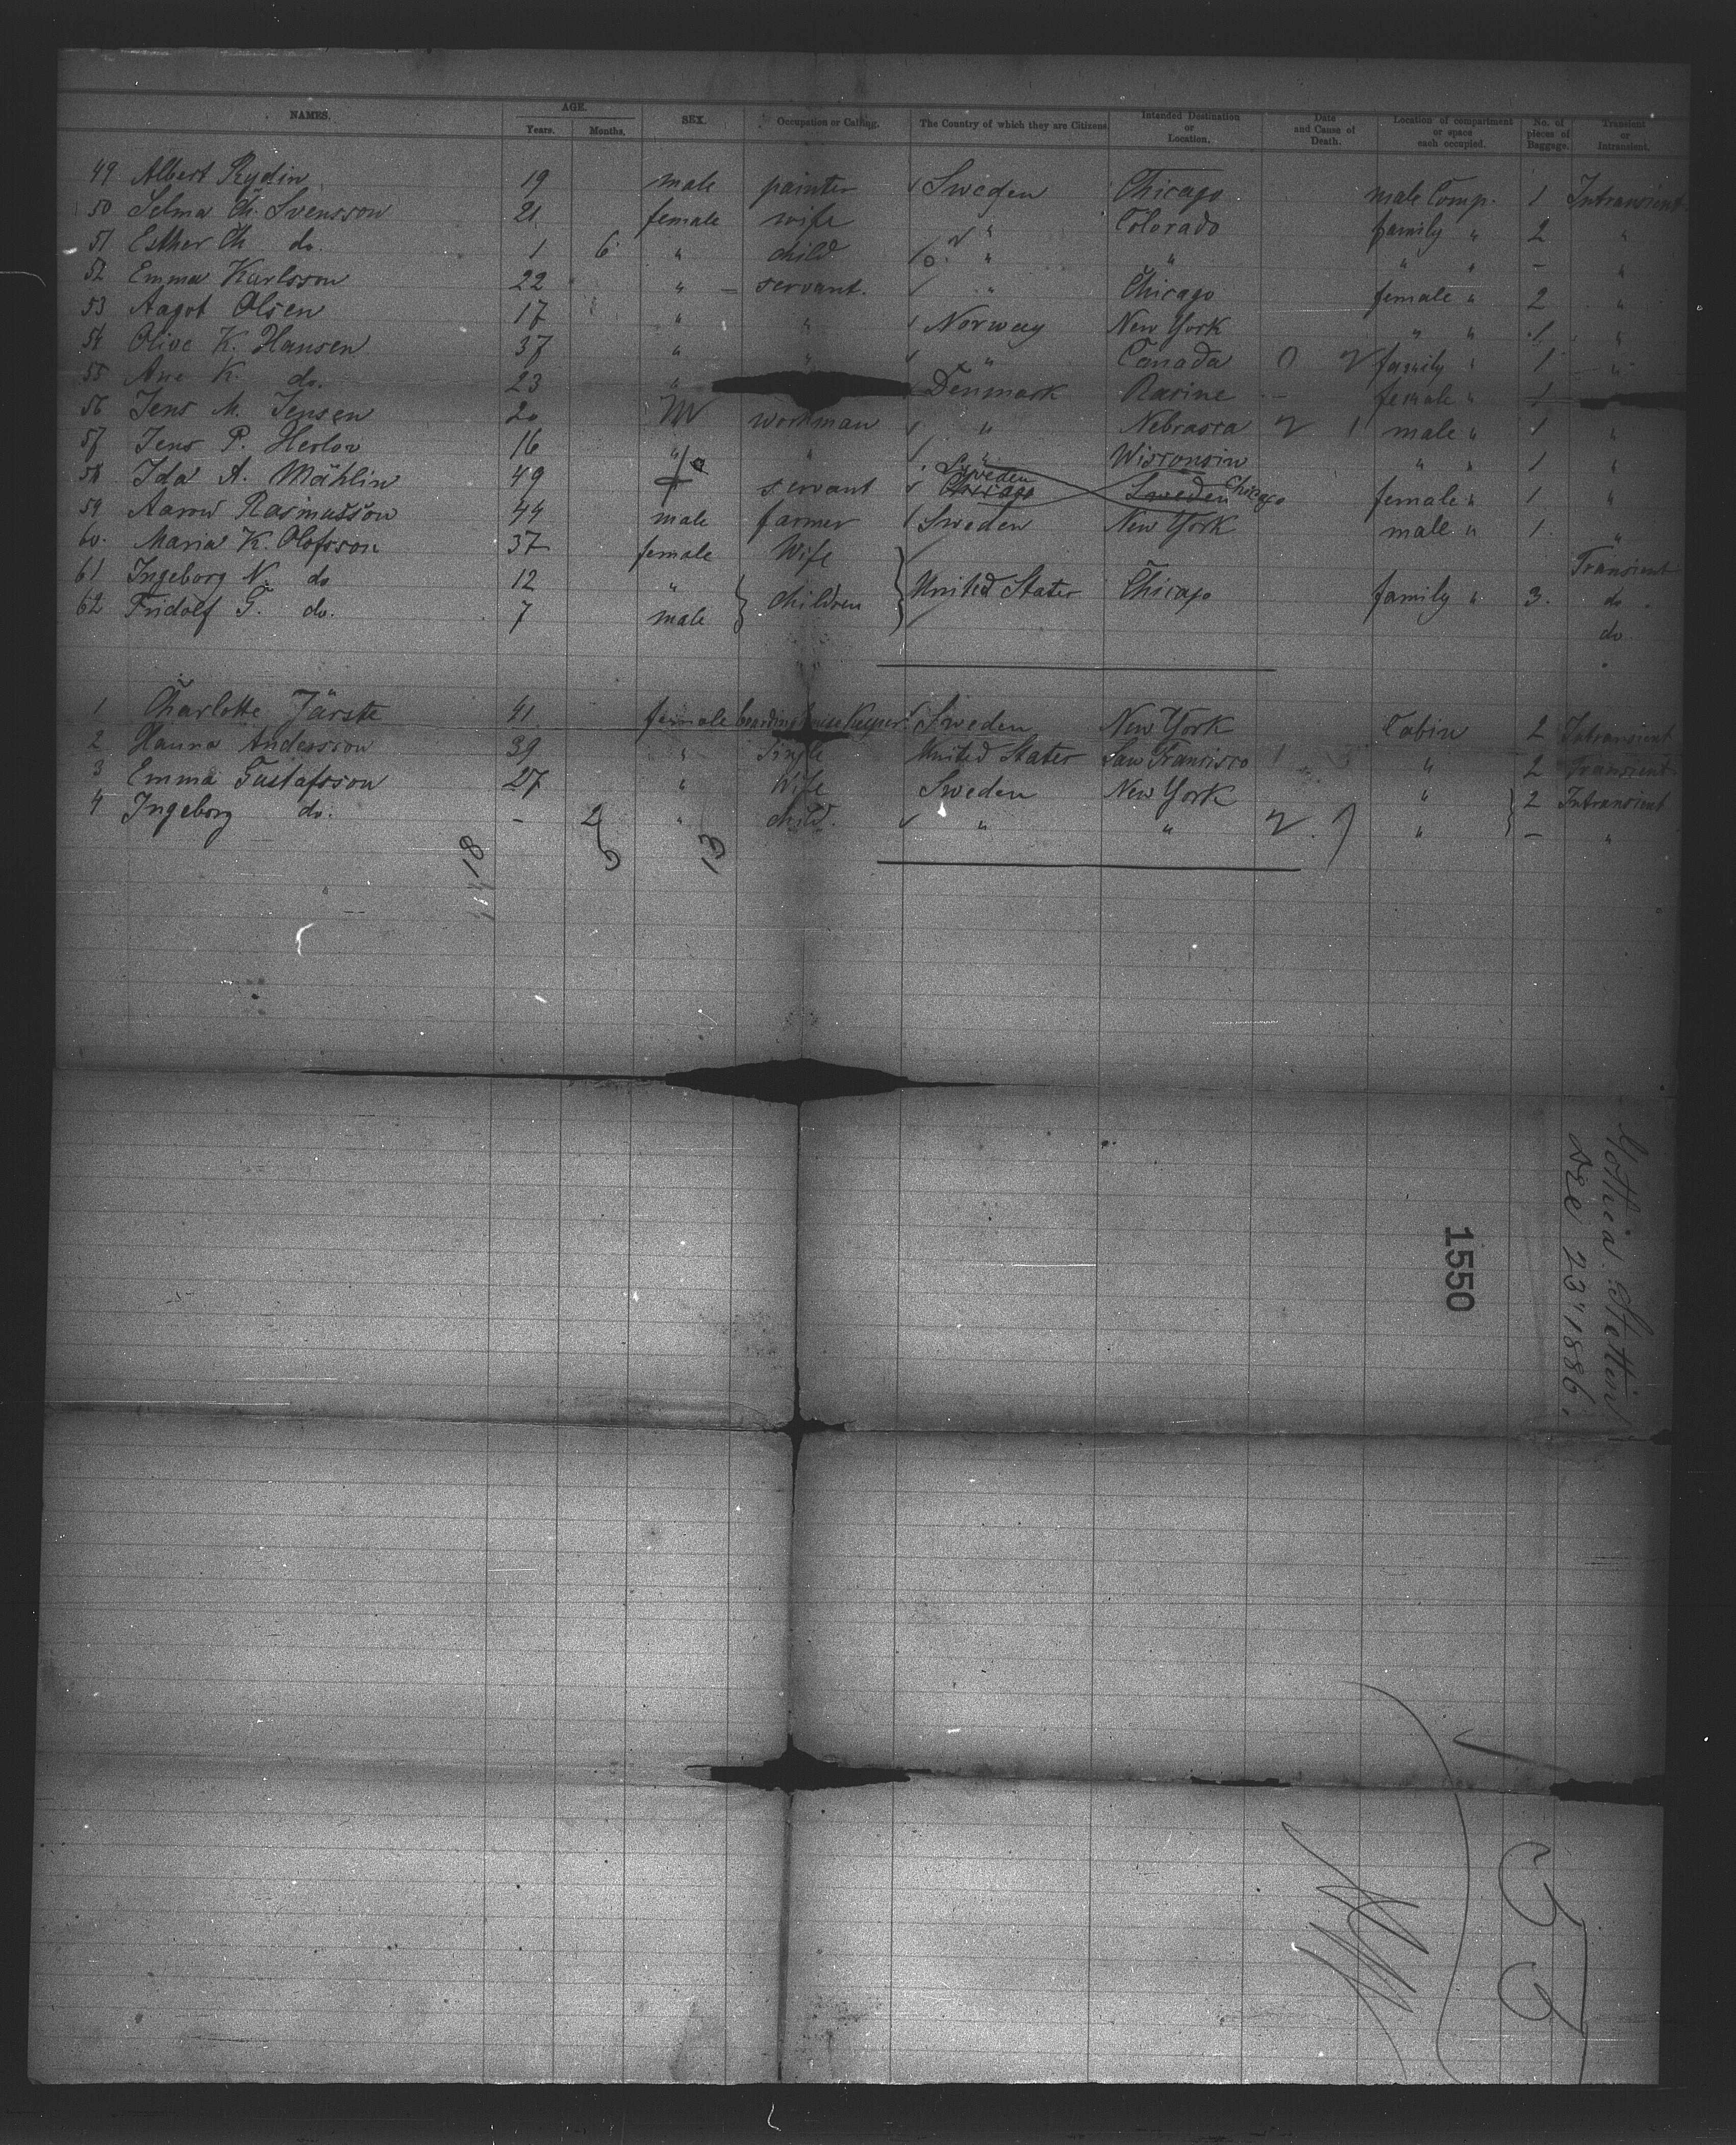 NAMES. AGE. Years. Months. SEX. Occupation or Calling. The Country of which they are Citizens. Intended Destination or Location. Date and Cause of Death. Location of compartment or space each occupied. No. of pieces of Baggage. Transient or Intransient.
49 Albert Rydin 19 male painter Sweden Chicago male Comp. 1 Intransient
50 Selma Ch. Svensson 21 female wife " Colorado family " 2 "
51 Esther Ch do. 1 6 " child " " " " - "
52 Emma Karlsson 22 " servant. " Chicago female " 2 "
53 Aagot Olsen 17 " " Norway New York " " 1 "
54 Olive K. Hansen 37 " " " Canada family " 1 "
55 Ane K. do. 23 " Denmark Racine female " 1
56 Jens M. Jensen 20 M workman " Nebrasca male " 1 "
57 Jens P. Herlov 16 " " " Wisconsin " " 1 "
58 Ida A. Mählin 49 servant Sweden Chicago female " 1 "
59 Aaron Rasmusson 44 male farmer Sweden New York male " 1. "
60. Maria K. Olofsson 37 female Wife Transient
61 Ingeborg N. do 12 " children United States Chicago family " 3. do
62 Fridolf G. do. 7 male do
1 Charlotte Järste 41 female boardinghouse Keeper Sweden New York Cabin 2 Intransient
2 Hanna Andersson 39 " Single United States San Francisco " 2 Transient
3 Emma Gustafsson 27 " Wife Sweden New York " 2 Intransient
4 Ingeborg do. - 2 " child. " " " - "
18
13
Gothia. Stettin
Dec 23" 1886.
1550